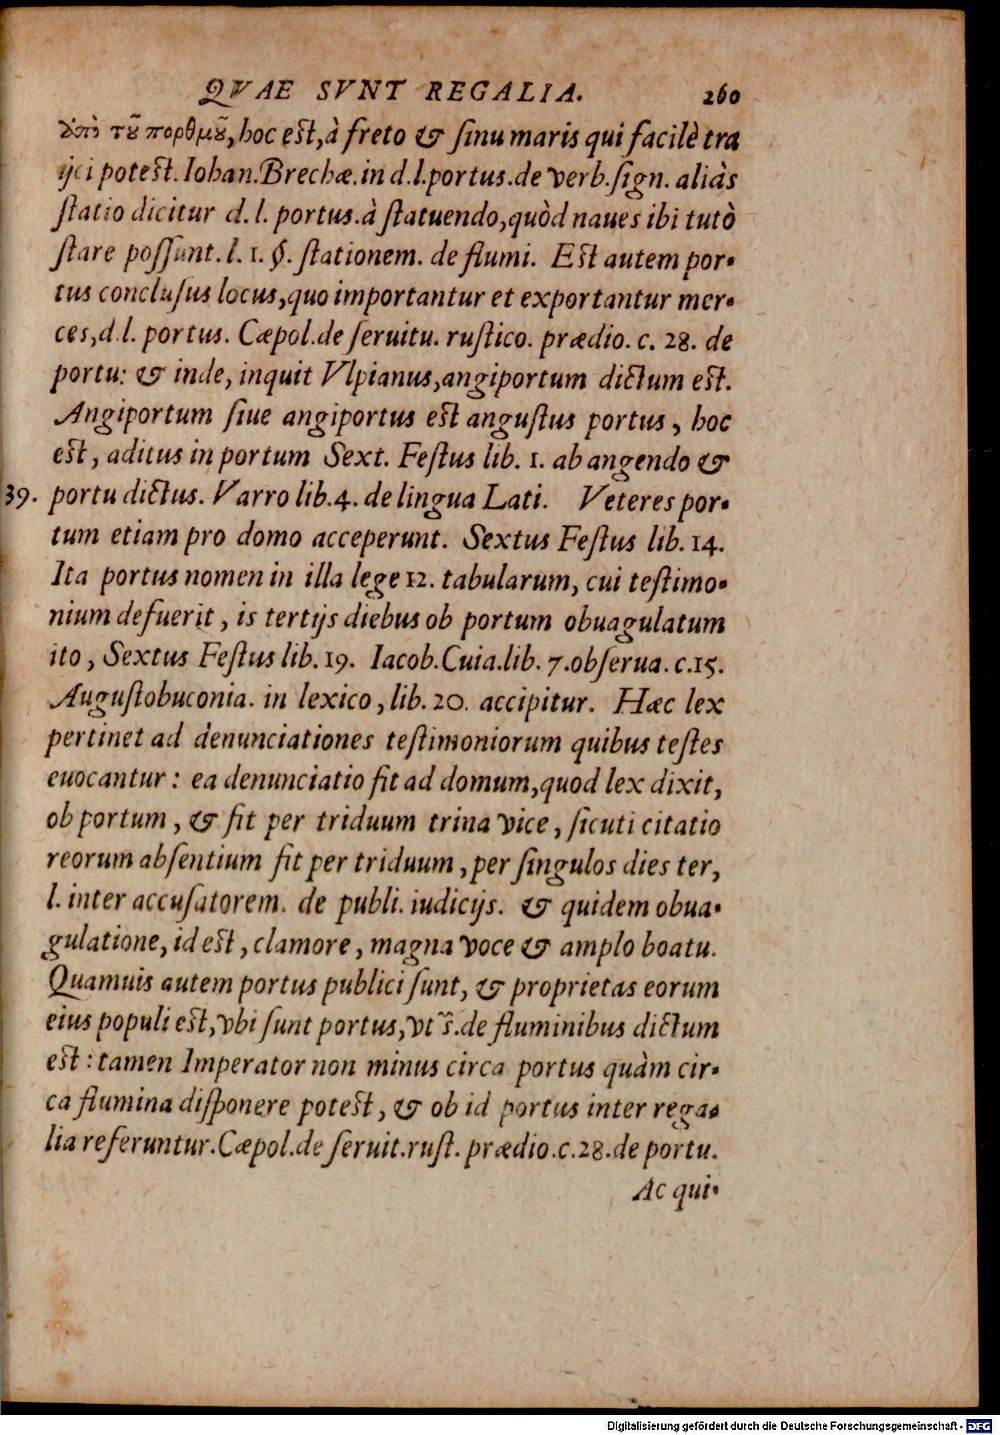 QVAE SVNT REGALIA. 260
ἀπὸ τοῦ πορθμοῦ, hoc est, à freto & sinu maris qui facilè tra
ijci potest. Iohan. Brechæ. in d.l. portus. de verb. sign. aliàs
statio dicitur d. l. portus. à statuendo, quòd naues ibi tutò
stare possunt. l. 1. §. stationem. de flumi. Est autem por-
tus conclusus locus, quo importantur et exportantur mer-
ces, d.l. portus. Cæpol. de seruitu. rustico. prædio. c. 28. de
portu: & inde, inquit Vlpianus, angiportum dictum est.
Angiportum siue angiportus est angustus portus, hoc
est, aditus in portum Sext. Festus lib. 1. ab angendo &
39. portu dictus. Varro lib. 4. de lingua Lati. Veteres por-
tum etiam pro domo acceperunt. Sextus Festus lib. 14.
Ita portus nomen in illa lege 12. tabularum, cui testimo-
nium defuerit, is tertijs diebus ob portum obuagulatum
ito, Sextus Festus lib. 19. Iacob. Cuia. lib. 7. obserua. c. 15.
Augustobuconia. in lexico, lib. 20. accipitur. Hæc lex
pertinet ad denunciationes testimoniorum quibus testes
euocantur: ea denunciatio fit ad domum, quod lex dixit,
ob portum, & fit per triduum trina vice, sicuti citatio
reorum absentium fit per triduum, per singulos dies ter,
l. inter accusatorem. de publi. iudicijs. & quidem obua-
gulatione, id est, clamore, magna voce & amplo boatu.
Quamuis autem portus publici sunt, & proprietas eorum
eius populi est, vbi sunt portus, vt s̃. de fluminibus dictum
est: tamen Imperator non minus circa portus quàm cir-
ca flumina disponere potest, & ob id portus inter rega-
lia referuntur. Cæpol. de seruit. rust. prædio. c. 28. de portu.
Ac qui-
Digitalisierung gefördert durch die Deutsche Forschungsgemeinschaft - DFG